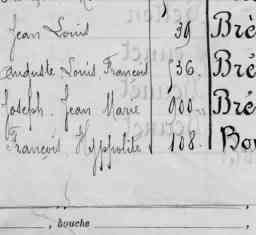 Jean Louis 39 Brè
Auguste Louis François 536. Bré
Joseph. Jean Marie 900 Bré
François Hyppolite 108. Bou
, bouche ,